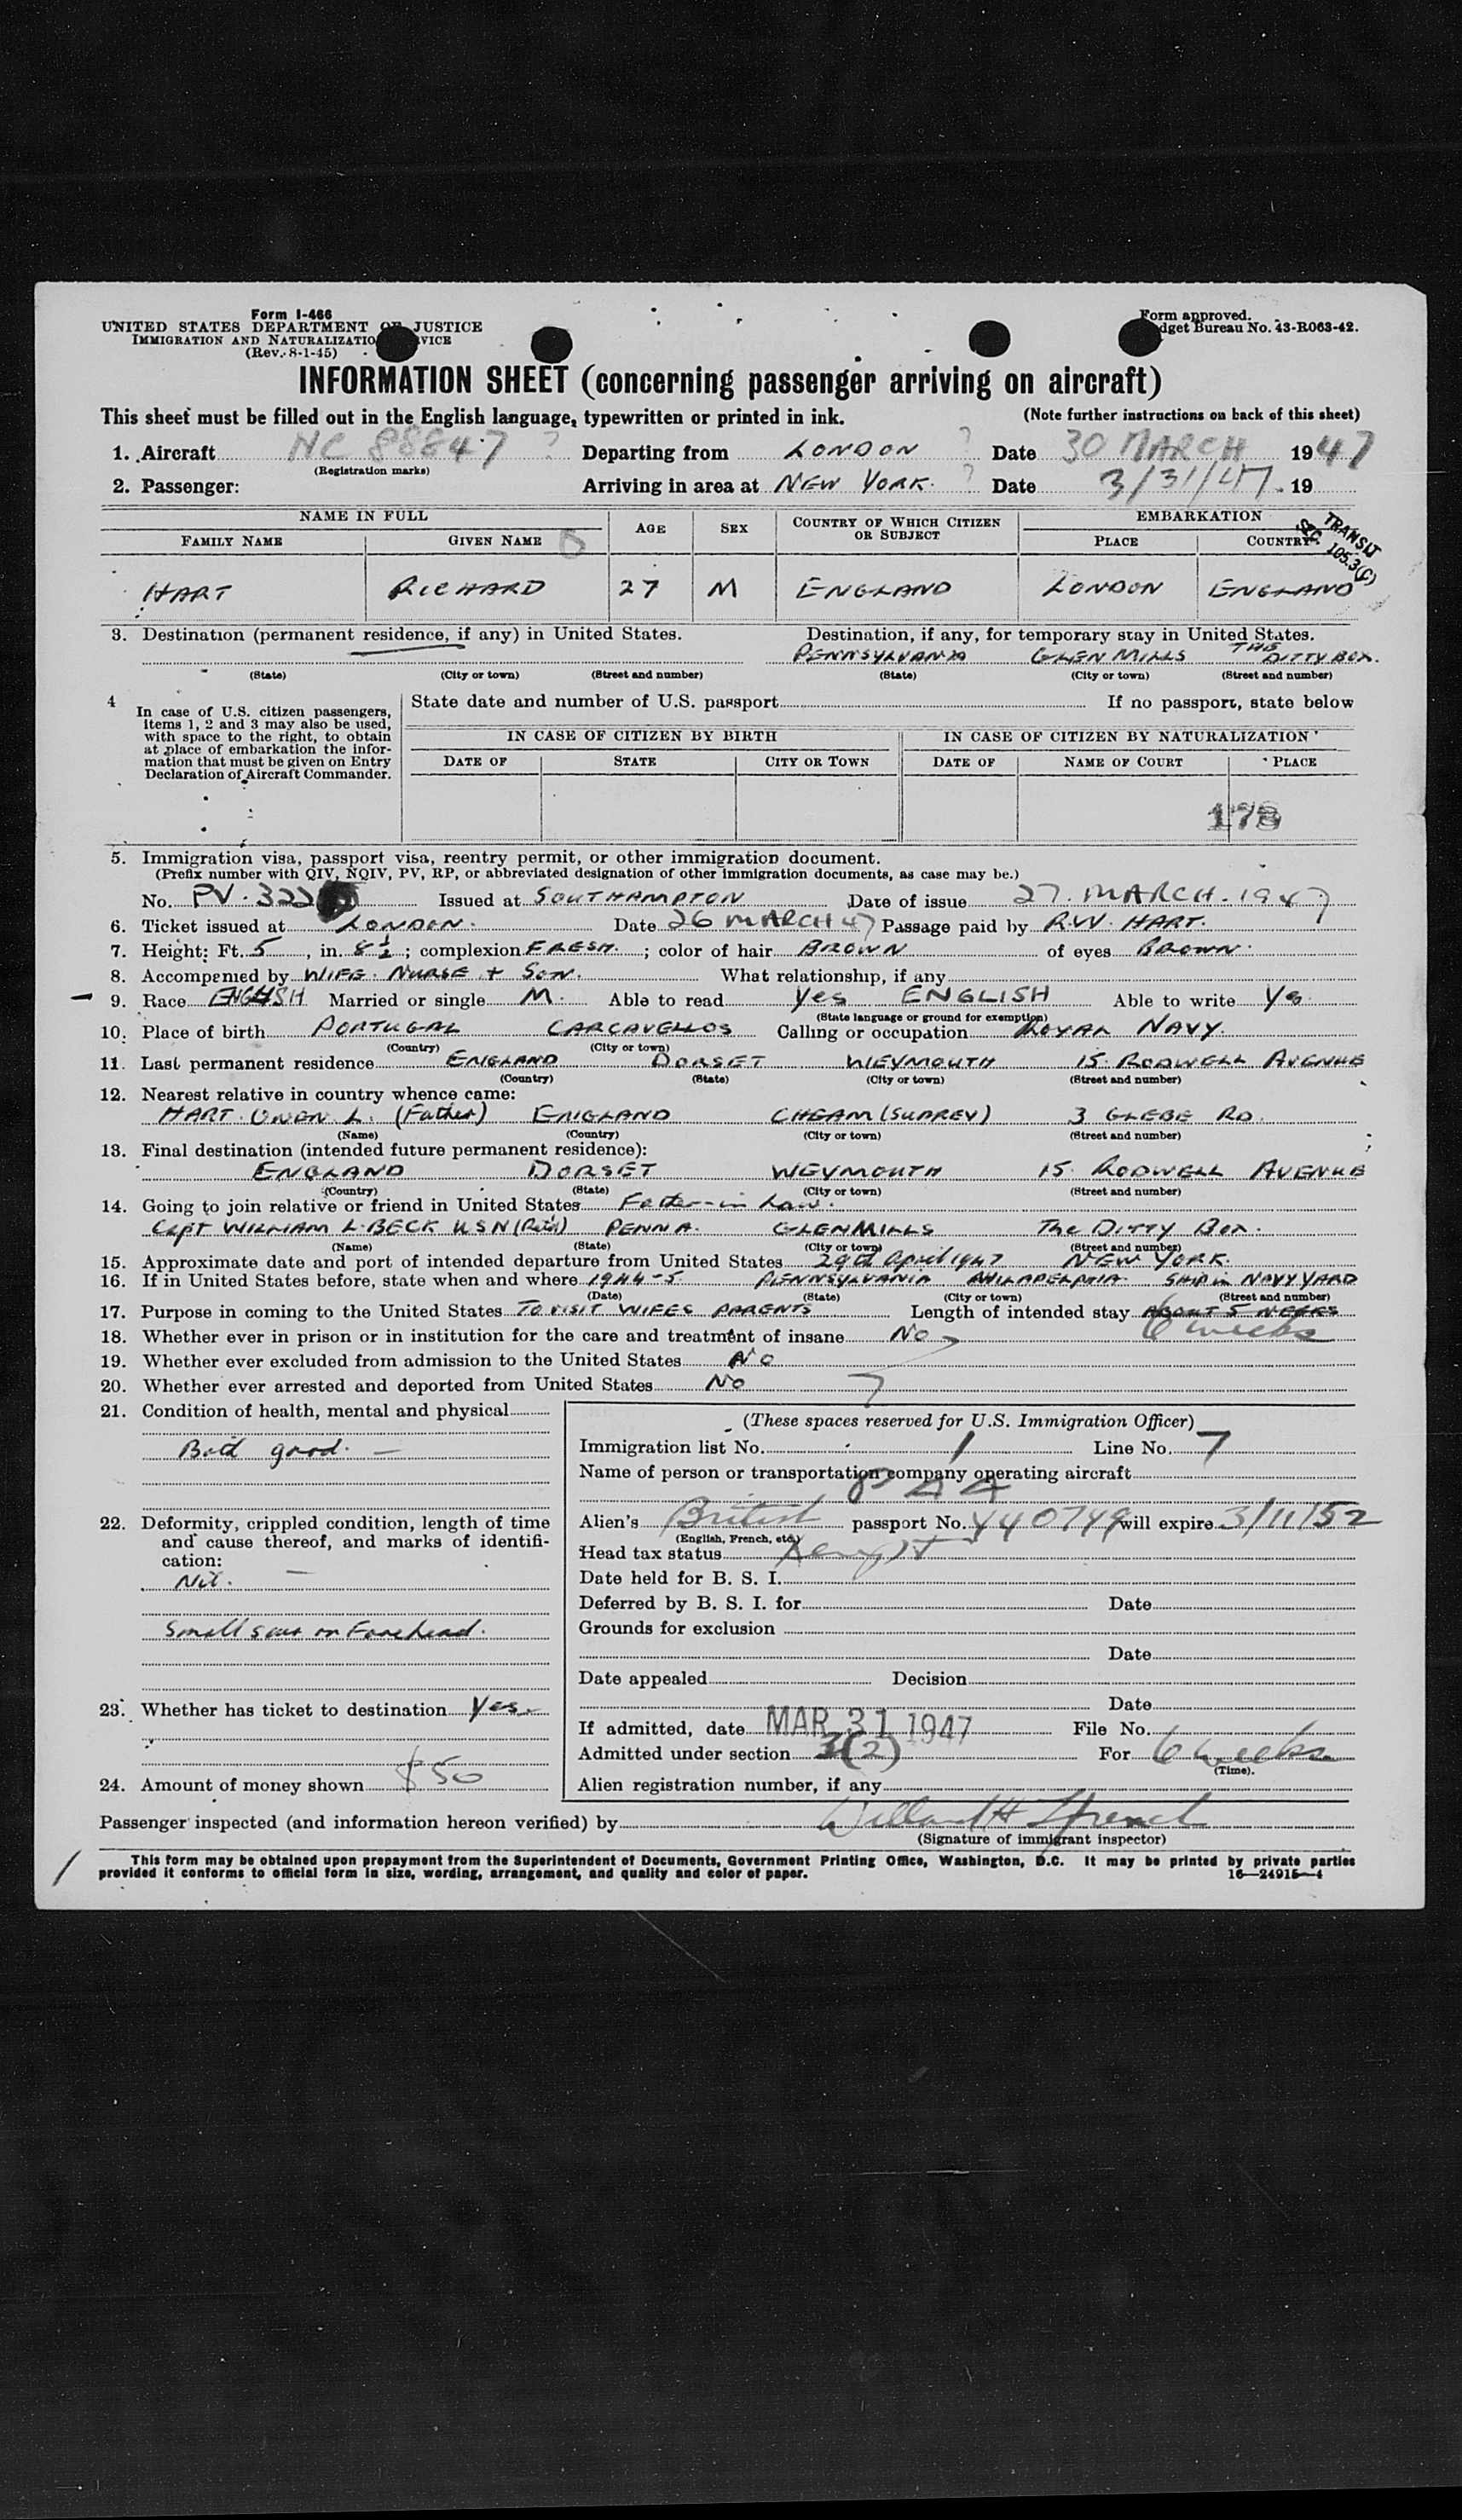 Form I-466
UNITED STATES DEPARTMENT OF JUSTICE
IMMIGRATION AND NATURALIZATIO VICE
(Rev. 8-1-45)
Form approved.
dget Bureau No. 43-R063-42.
INFORMATION SHEET (concerning passenger arriving on aircraft)
This sheet must be filled out in the English language, typewritten or printed in ink. (Note further instructions on back of this sheet)
1. Aircraft NC 88847 ? Departing from LONDON ? Date 30 MARCH 1947
(Registration marks)
2. Passenger: Arriving in area at NEW YORK. ? Date 3/31/47 19
NAME IN FULL AGE SEX COUNTRY OF WHICH CITIZEN OR SUBJECT EMBARKATION
FAMILY NAME GIVEN NAME PLACE COUNTRY
TRANSIT
SEC. 105.3(C)
HART RICHARD 27 M ENGLAND LONDON ENGLAND
3. Destination (permanent residence, if any) in United States. Destination, if any, for temporary stay in United States.
PENNSYLVANIA GLEN MILLS THE DITTY BOX.
(State) (City or town) (Street and number) (State) (City or town) (Street and number)
4 In case of U.S. citizen passengers, items 1, 2 and 3 may also be used, with space to the right, to obtain at place of embarkation the information that must be given on Entry Declaration of Aircraft Commander.
State date and number of U.S. passport If no passport, state below
IN CASE OF CITIZEN BY BIRTH IN CASE OF CITIZEN BY NATURALIZATION
DATE OF STATE CITY OR TOWN DATE OF NAME OF COURT PLACE
178
5. Immigration visa, passport visa, reentry permit, or other immigration document.
(Prefix number with QIV, NQIV, PV, RP, or abbreviated designation of other immigration documents, as case may be.)
No. PV. 322 Issued at SOUTHAMPTON Date of issue 27. MARCH. 1947
6. Ticket issued at LONDON. Date 26 MARCH 47 Passage paid by R.W. HART.
7. Height: Ft. 5, in. 8½; complexion FRESH.; color of hair BROWN of eyes BROWN.
8. Accompenied by WIFE. NURSE + SON. What relationship, if any
9. Race ENGLISH Married or single M. Able to read Yes ENGLISH Able to write Yes
(State language or ground for exemption)
10. Place of birth PORTUGAL CARCAVELLOS Calling or occupation ROYAL NAVY.
(Country) (City or town)
11. Last permanent residence ENGLAND DORSET WEYMOUTH 15. RODWELL AVENUE
(Country) (State) (City or town) (Street and number)
12. Nearest relative in country whence came:
HART. OWEN. L. (Father) ENGLAND CHEAM (SURREY) 3 GLEBE RD.
(Name) (Country) (City or town) (Street and number)
13. Final destination (intended future permanent residence):
ENGLAND DORSET WEYMOUTH 15. RODWELL AVENUE
(Country) (State) (City or town) (Street and number)
14. Going to join relative or friend in United States Father-in Law.
Capt WILLIAM L. BECK USN (Ret'd) PENNA. GLENMILLS The DITTY BOX.
(Name) (State) (City or town) (Street and number)
15. Approximate date and port of intended departure from United States 29th April 1947 NEW YORK.
16. If in United States before, state when and where 1944-5 PENNSYLVANIA PHILADELPHIA SHIP in NAVY YARD
(Date) (State) (City or town) (Street and number)
17. Purpose in coming to the United States TO VISIT WIFES PARENTS Length of intended stay ABOUT 5 WEEKS
6 weeks
18. Whether ever in prison or in institution for the care and treatment of insane No
19. Whether ever excluded from admission to the United States No
20. Whether ever arrested and deported from United States No
21. Condition of health, mental and physical
Both good.
22. Deformity, crippled condition, length of time and cause thereof, and marks of identification:
Nil.
Small scar on Forehead.
23. Whether has ticket to destination Yes.
24. Amount of money shown $50
(These spaces reserved for U.S. Immigration Officer)
Immigration list No. 1 Line No. 7
Name of person or transportation company operating aircraft
PAA
Alien's British passport No. 440749 will expire 3/11/52
(English, French, etc.)
Head tax status Exempt
Date held for B. S. I.
Deferred by B. S. I. for Date
Grounds for exclusion
Date
Date appealed Decision
Date
If admitted, date MAR 31 1947 File No.
Admitted under section 3(2) For 6 weeks
(Time).
Alien registration number, if any
Passenger inspected (and information hereon verified) by Willard H
(Signature of immigrant inspector)
This form may be obtained upon prepayment from the Superintendent of Documents, Government Printing Office, Washington, D.C. It may be printed by private parties
provided it conforms to official form in size, wording, arrangement, and quality and color of paper. 16—24915-4